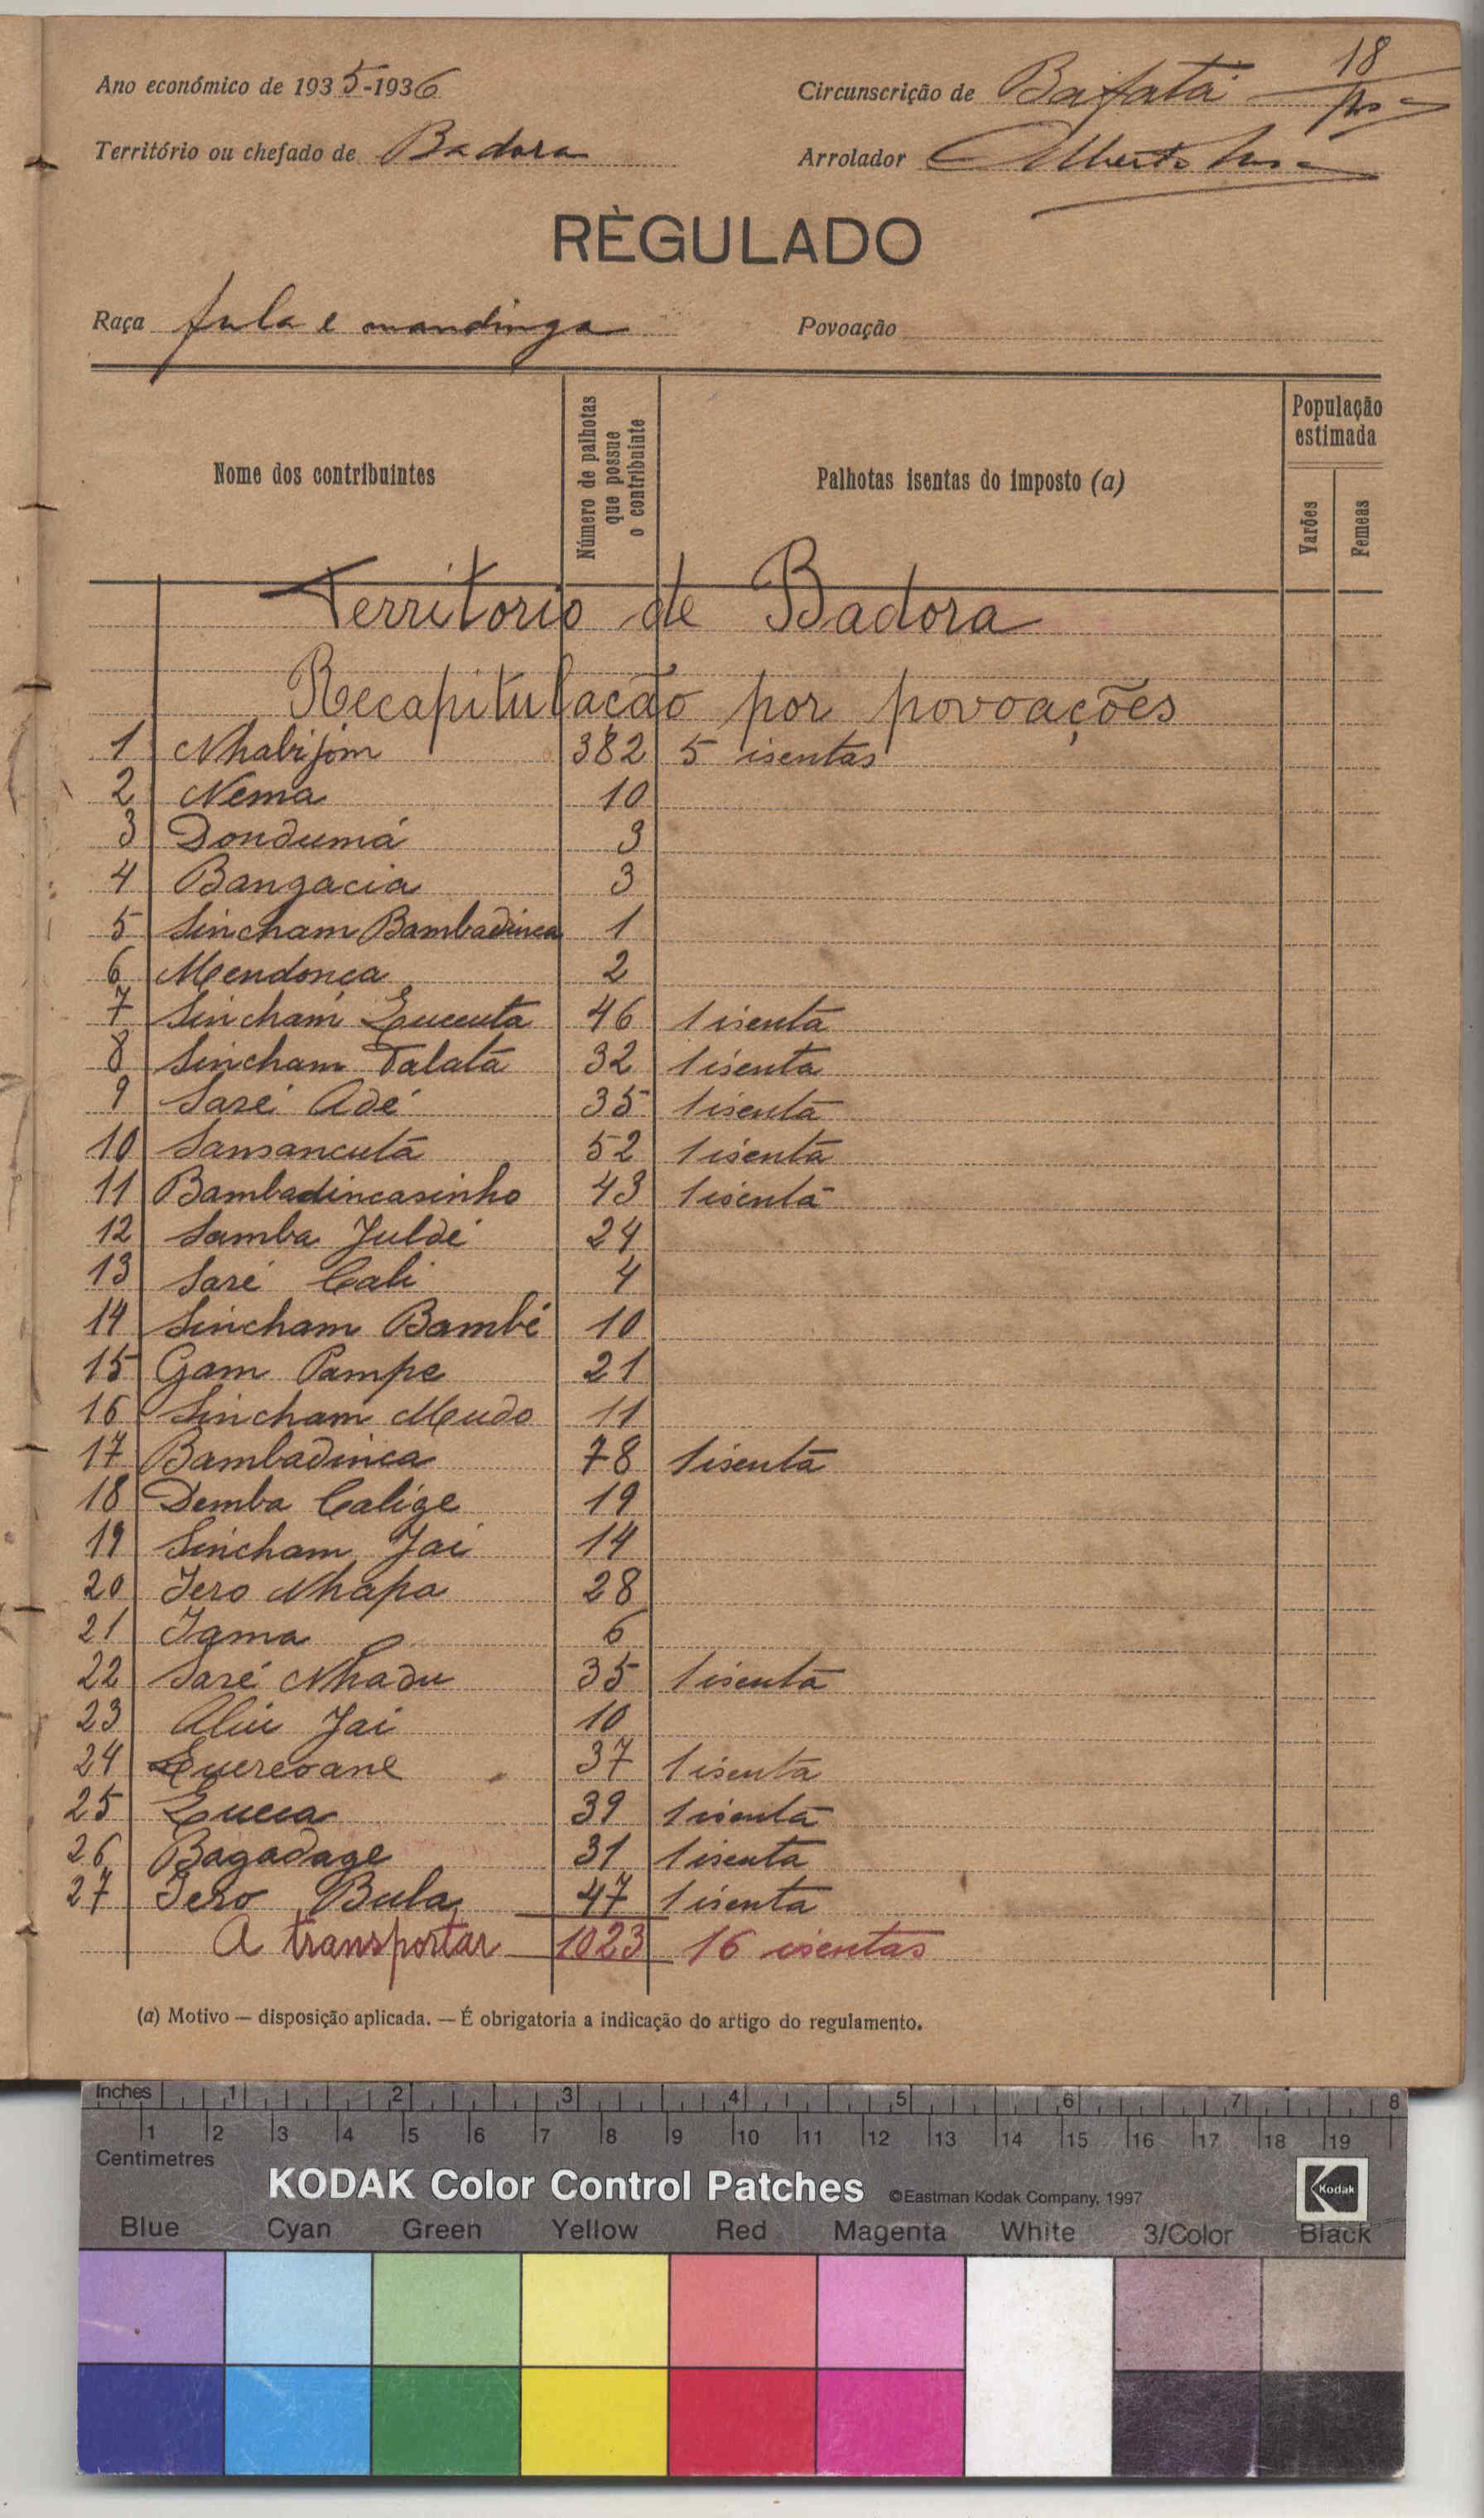 Ano económico de 1935-1936
Circunscrição de Bafatá
18
Território ou chefado de Badora
Arrolador Alberto
RÈGULADO
Raça fula e mandinga
Povoação
Nome dos contribuintes
Número de palhotas que possue o contribuinte
Palhotas isentas do imposto (a)
População estimada
Varões
Femeas
Territorio de Badora
Recapitulação por povoações
1 Nhabijom 382 5 isentas
2 Nema 10
3 Dondumá 3
4 Bangacia 3
5 Sincham Bambadinca 1
6 Mendonça 2
7 Sincham 46 1 isenta
8 Sincham Talatá 32 1 isenta
9 Saré Adé 35 1 isenta
10 Sansancutá 52 1 isenta
11 Bambadincasinho 43 1 isenta
12 Samba Juldé 24
13 Saré Cali 4
14 Sincham Bambé 10
15 Gam Pampe 21
16 Sincham Mudo 11
17 Bambadinca 78 1 isenta
18 Demba Calige 19
19 Sincham Jai 14
20 Iero Nhapa 28
21 Iama 6
22 Saré Nhadu 35 1 isenta
23 Aliu Jai 10
24 Queresane 37 1 isenta
25 39 1 isenta
26 Bagadage 31 1 isenta
27 Iero Bula 47 1 isenta
A transportar 1023 16 isentas
(a) Motivo — disposição aplicada. — É obrigatoria a indicação do artigo do regulamento.
Inches 1 2 3 4 5 6 7 8
1 2 3 4 5 6 7 8 9 10 11 12 13 14 15 16 17 18 19
Centimetres
KODAK Color Control Patches ©Eastman Kodak Company, 1997 Kodak
Blue Cyan Green Yellow Red Magenta White 3/Color Black